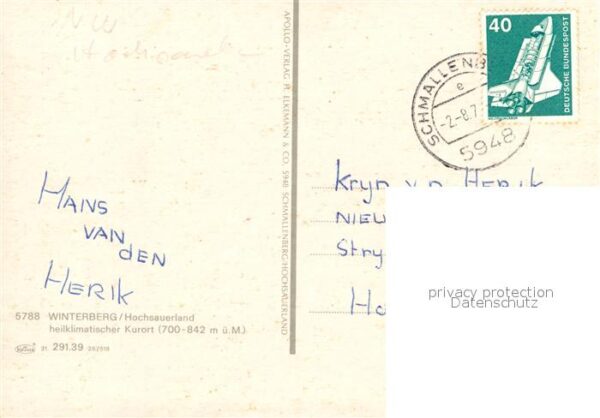 NW
HANS
VAN DEN
HERIK
5788 WINTERBERG/Hochsauerland
heilklimatischer Kurort (700-842 m ü.M.)
21. 291.39
APOLLO-VERLAG H. ELKEMANN & CO. 5948 SCHMALLENBERG/HOCHSAUERLAND
40
DEUTSCHE BUNDESPOST
SCHMALLENB
e
-2-8.7
5948
Kryn v.d. HERIK
NIEU
Stry
Ho
privacy protection
Datenschutz